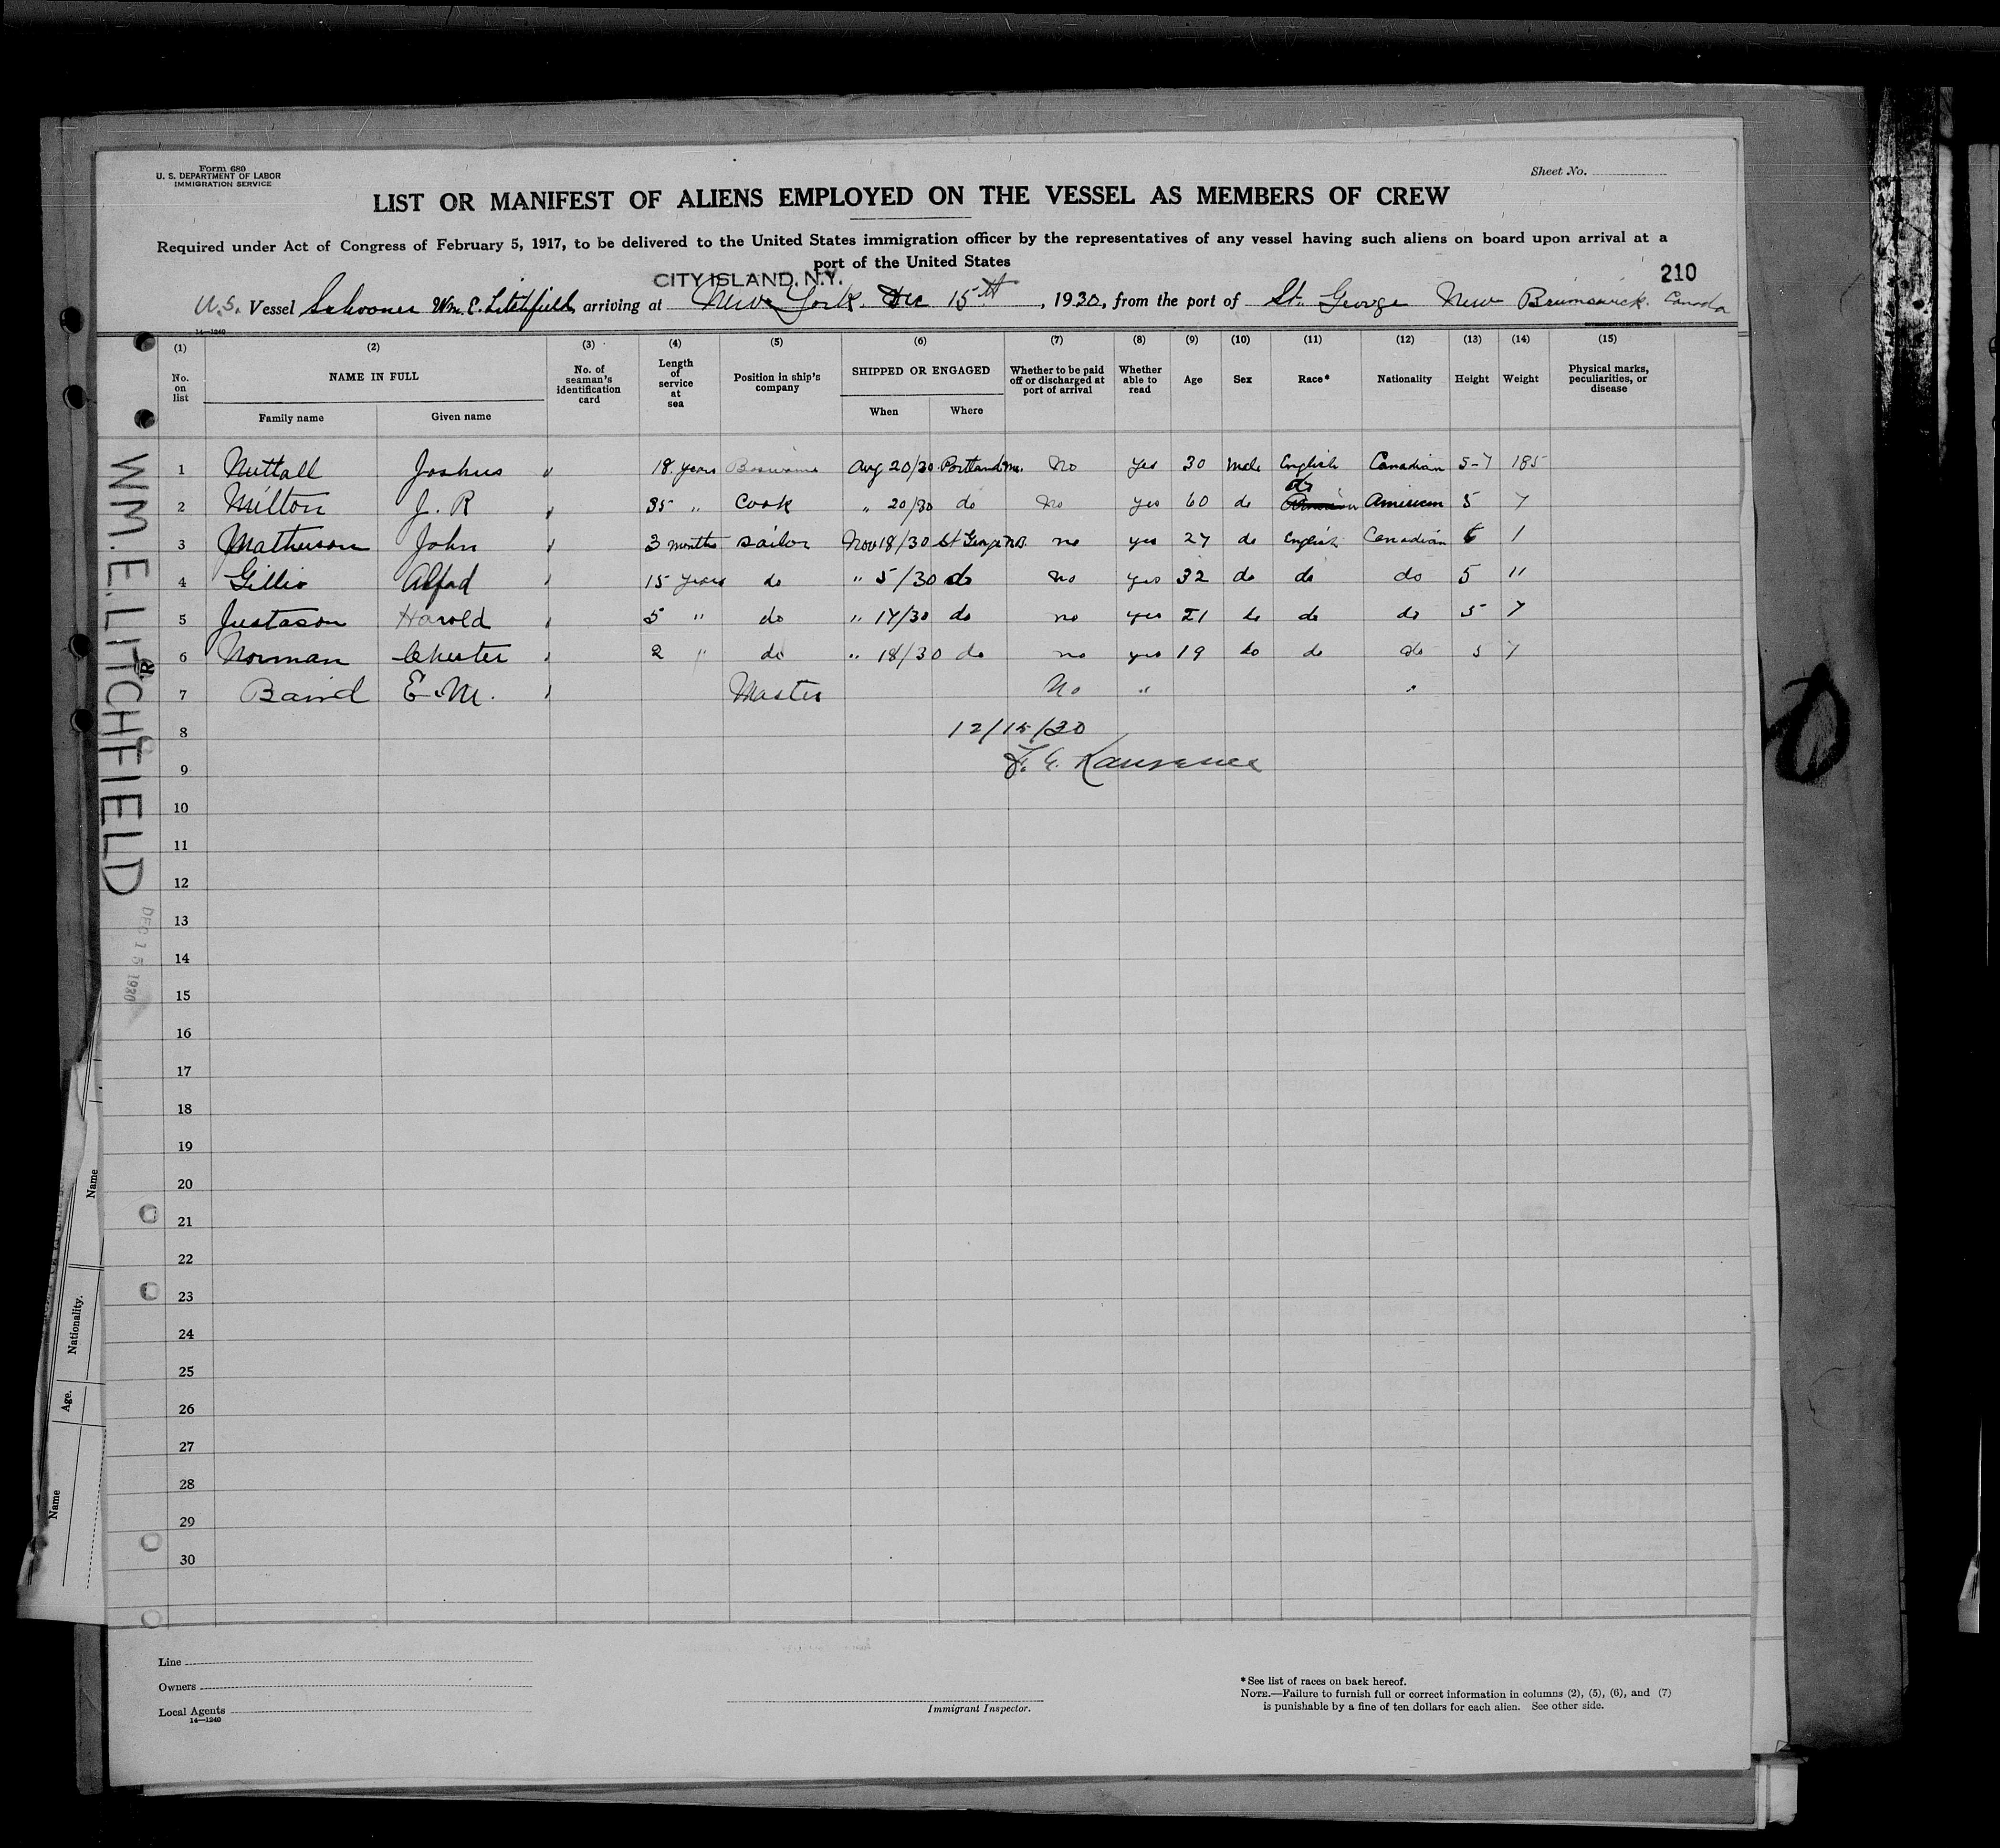 Form 680
U. S. DEPARTMENT OF LABOR
IMMIGRATION SERVICE
Sheet No.
LIST OR MANIFEST OF ALIENS EMPLOYED ON THE VESSEL AS MEMBERS OF CREW
Required under Act of Congress of February 5, 1917, to be delivered to the United States immigration officer by the representatives of any vessel having such aliens on board upon arrival at a
port of the United States
CITY ISLAND, N.Y.
210
U.S. Vessel Schooner Wm. E. Litchfield, arriving at New York. Dec 15th, 1930, from the port of St. George New Brunswick. Canada
14—1240
(1) (2) (3) (4) (5) (6) (7) (8) (9) (10) (11) (12) (13) (14) (15)
No. on list NAME IN FULL No. of seaman's identification card Length of service at sea Position in ship's company SHIPPED OR ENGAGED Whether to be paid off or discharged at port of arrival Whether able to read Age Sex Race* Nationality Height Weight Physical marks, peculiarities, or disease
Family name Given name When Where
1 Nuttall Joshua 18 years Aug 20/30 Portland Me. No yes 30 Male English Canadian 5-7 185
2 Milton J. R 35 " Cook " 20/30 do No yes 60 do do American 5 7
3 Matheson John 3 months Sailor Nov 18/30 St George N.B. no yes 27 do English Canadian 6 1
4 Gillis Alfred 15 years do " 5/30 do No yes 32 do do do 5 11
5 Justason Harold 5 " do " 17/30 do no yes 21 do do do 5 7
6 Norman Chester 2 " do " 18/30 do no yes 19 do do do 5 7
7 Baird E. M. Master No "
8 12/15/30
9 F. E. Lawrence
10
11
12
13
14
15
16
17
18
19
20
21
22
23
24
25
26
27
28
29
30
WM. E. LITCHFIELD
DEC 15 1930
Name
Nationality.
Age.
Name
Line
Owners
Local Agents
14—1240
Immigrant Inspector.
*See list of races on back hereof.
NOTE.—Failure to furnish full or correct information in columns (2), (5), (6), and (7)
is punishable by a fine of ten dollars for each alien. See other side.